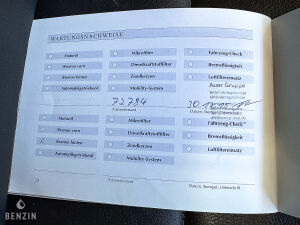 WARTUNGSNACHWEISE
Motoröl
Mikrofilter
Fahrzeug-Check
Bremse vorn
Dieselkraftstofffilter
Bremsflüssigkeit
Bremse hinten
Zündkerzen
Luftfiltereinsatz
Automatikgetriebeöl
Mobility-System
Auer Gruppe
72784
30
Kilometerstand
Datum, Stempel, Unterschrift
Motoröl
Mikrofilter
Fahrzeug-Check
Bremse vorn
Dieselkraftstofffilter
Bremsflüssigkeit
Bremse hinten
Zündkerzen
Luftfiltereinsatz
Automatikgetriebeöl
Mobility-System
Kilometerstand
Datum, Stempel, Unterschrift
BENZIN